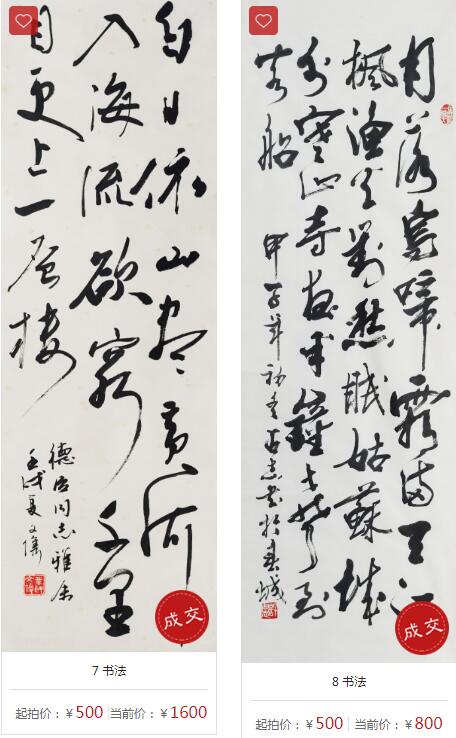 白日依山尽黄河
入海流欲窮千里
目更上一层楼
德宏同志雅属
壬戌夏文
成交
7 书法
起拍价：￥500 当前价：￥1600
月落烏啼霜满天江
楓渔火對愁眠姑蘇城
外寒山寺夜半鐘聲到
客船
甲子年初冬 書於春城
成交
8 书法
起拍价：￥500 当前价：￥800